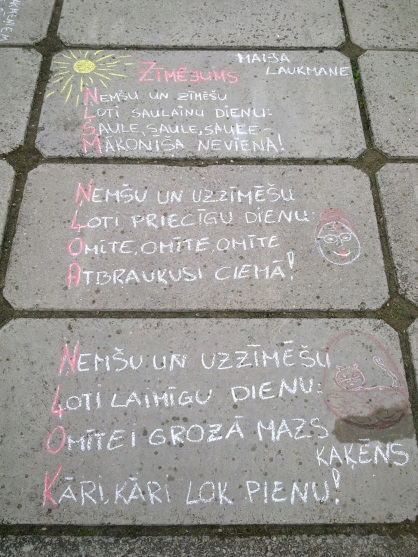 Zīmējums
Maija
Laukmane
Ņemšu un zīmēšu
Ļoti saulainu dienu:
Saule, saule, saule –
Mākoniša neviena!
Ņemšu un uzzīmēšu
Ļoti priecīgu dienu:
Omīte, omīte, omīte
Atbraukusi ciemā!
Ņemšu un uzzīmēšu
Ļoti laimīgu dienu:
Omītei grozā mazs
kaķēns
Kāri, kāri lok pienu!